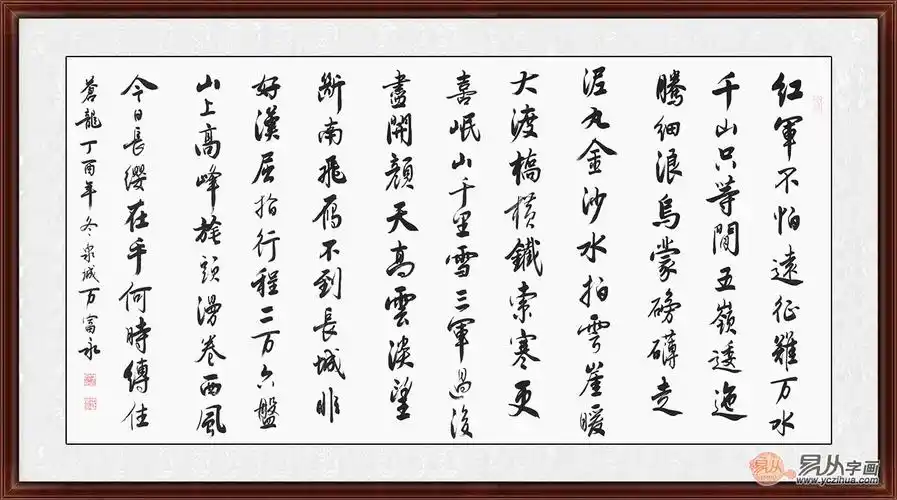 紅軍不怕遠征難万水
千山只等閒五嶺逶迤
騰細浪烏蒙磅礴走
泥丸金沙水拍雲崖暖
大渡橋横鐵索寒更
喜岷山千里雪三軍過後
盡開顔天高雲淡望
斷南飛雁不到長城非
好漢屈指行程二万六盤
山上高峰旄頭漫卷西風
今日長纓在手何時縛住
蒼龍丁酉年冬泉城万富永
易从字画
www.yczihua.com